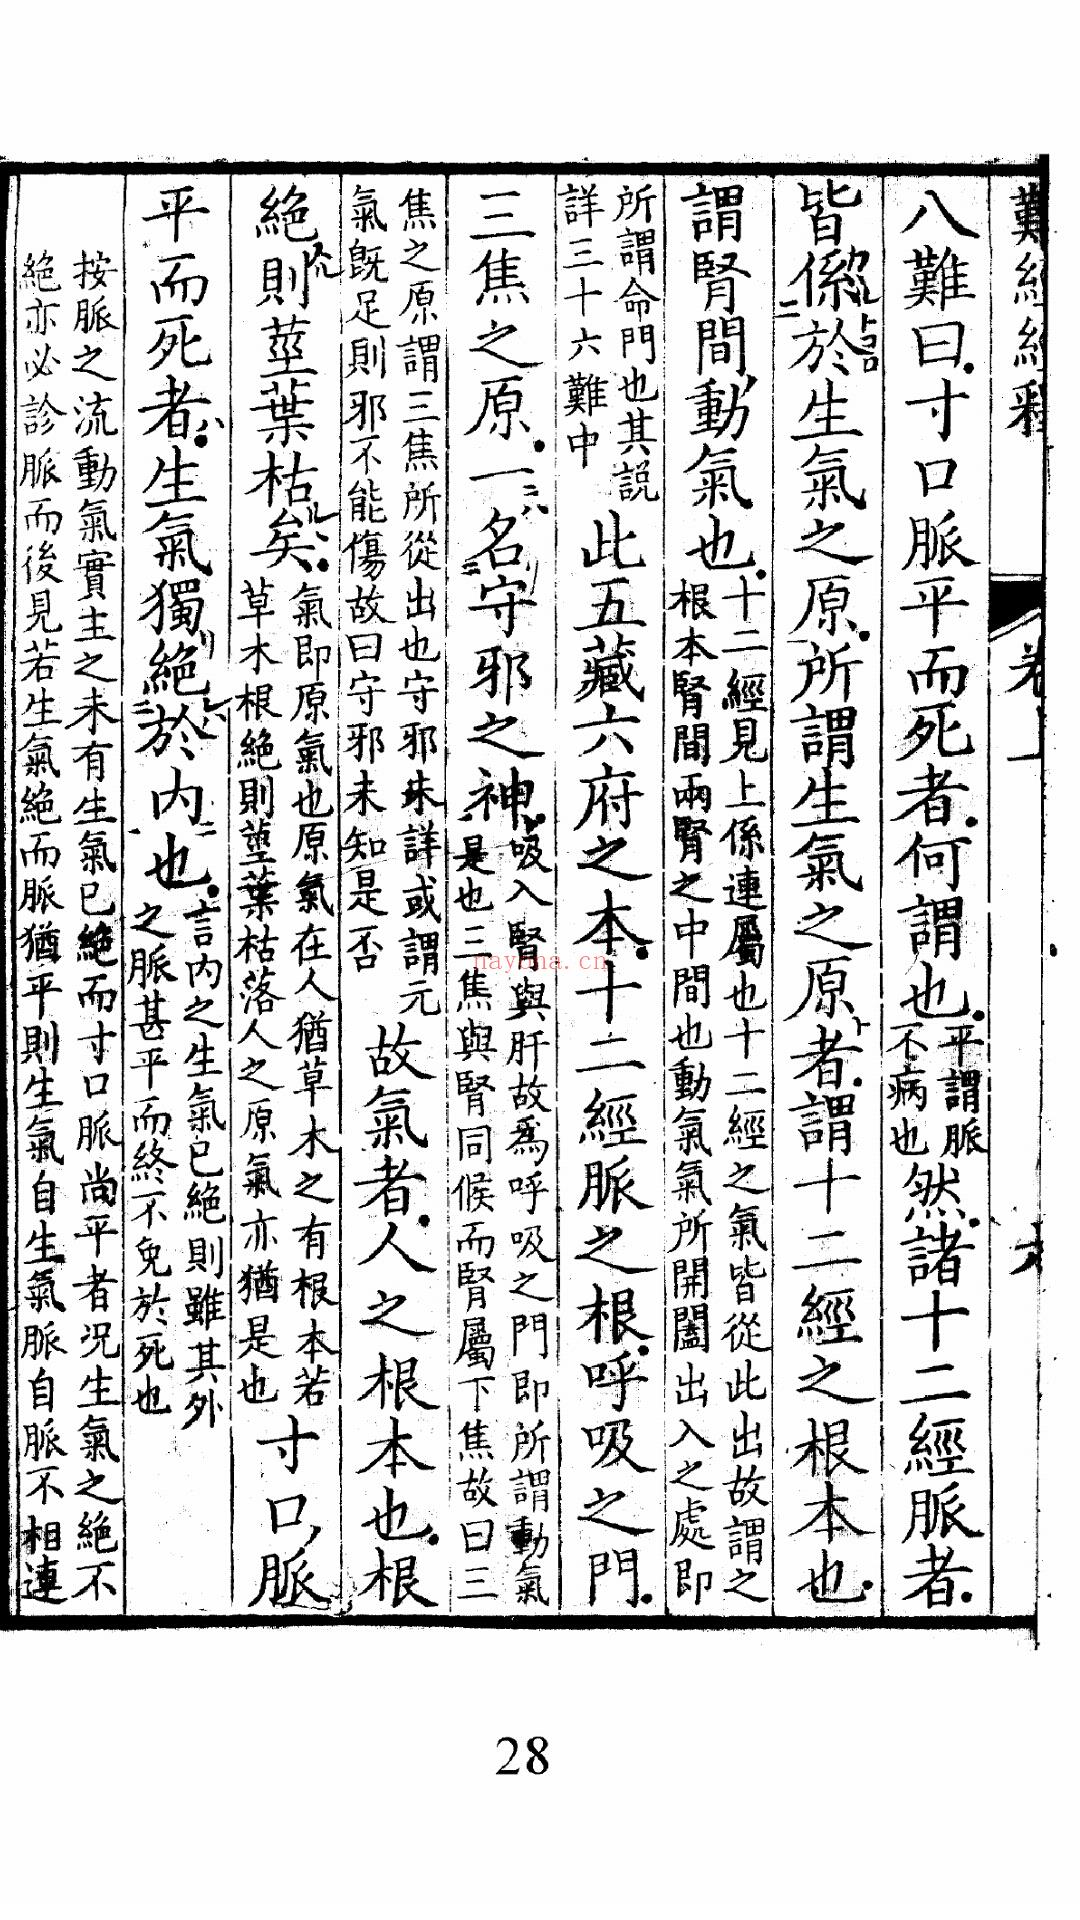 難經經釋
卷上
八難曰寸口脈平而死者何謂也
平謂脈
不病也
然諸十二經脈者
皆係於生氣之原所謂生氣之原者謂十二經之根本也
謂腎間動氣也
十二經見上係連屬也十二經之氣皆從此出故謂之
根本腎間兩腎之中間也動氣氣所開闔出入之處即
所謂命門也其説
詳三十六難中
此五藏六府之本十二經脈之根呼吸之門
三焦之原一名守邪之神
吸入腎與肝故爲呼吸之門即所謂動氣
是也三焦與腎同候而腎屬下焦故曰三
焦之原謂三焦所從出也守邪未詳或謂元
氣既足則邪不能傷故曰守邪未知是否
故氣者人之根本也根
絶則莖葉枯矣
氣即原氣也原氣在人猶草木之有根本若
草木根絶則莖葉枯落人之原氣亦猶是也
寸口脈
平而死者生氣獨絶於内也
言内之生氣已絶則雖其外
之脈甚平而終不免於死也
按脈之流動氣實主之未有生氣已絶而寸口脈尚平者况生氣之絶不
絶亦必診脈而後見若生氣絶而脈猶平則生氣自生氣脈自脈不相連
naynna.cn
28